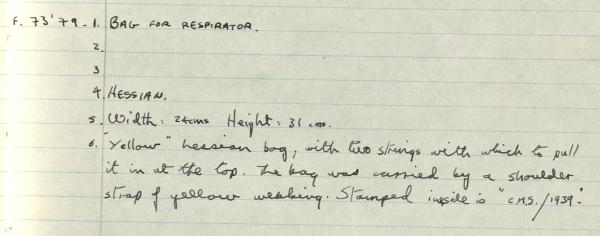 F. 73'79 - 1. BAG FOR RESPIRATOR.
2.
3
4. HESSIAN.
5. Width: 24cms Height: 31 cms.
6. "Yellow" hessian bag, with two strings with which to pull
it in at the top. The bag was carried by a shoulder
strap of yellow webbing. Stamped inside is "C.M.S./1939."